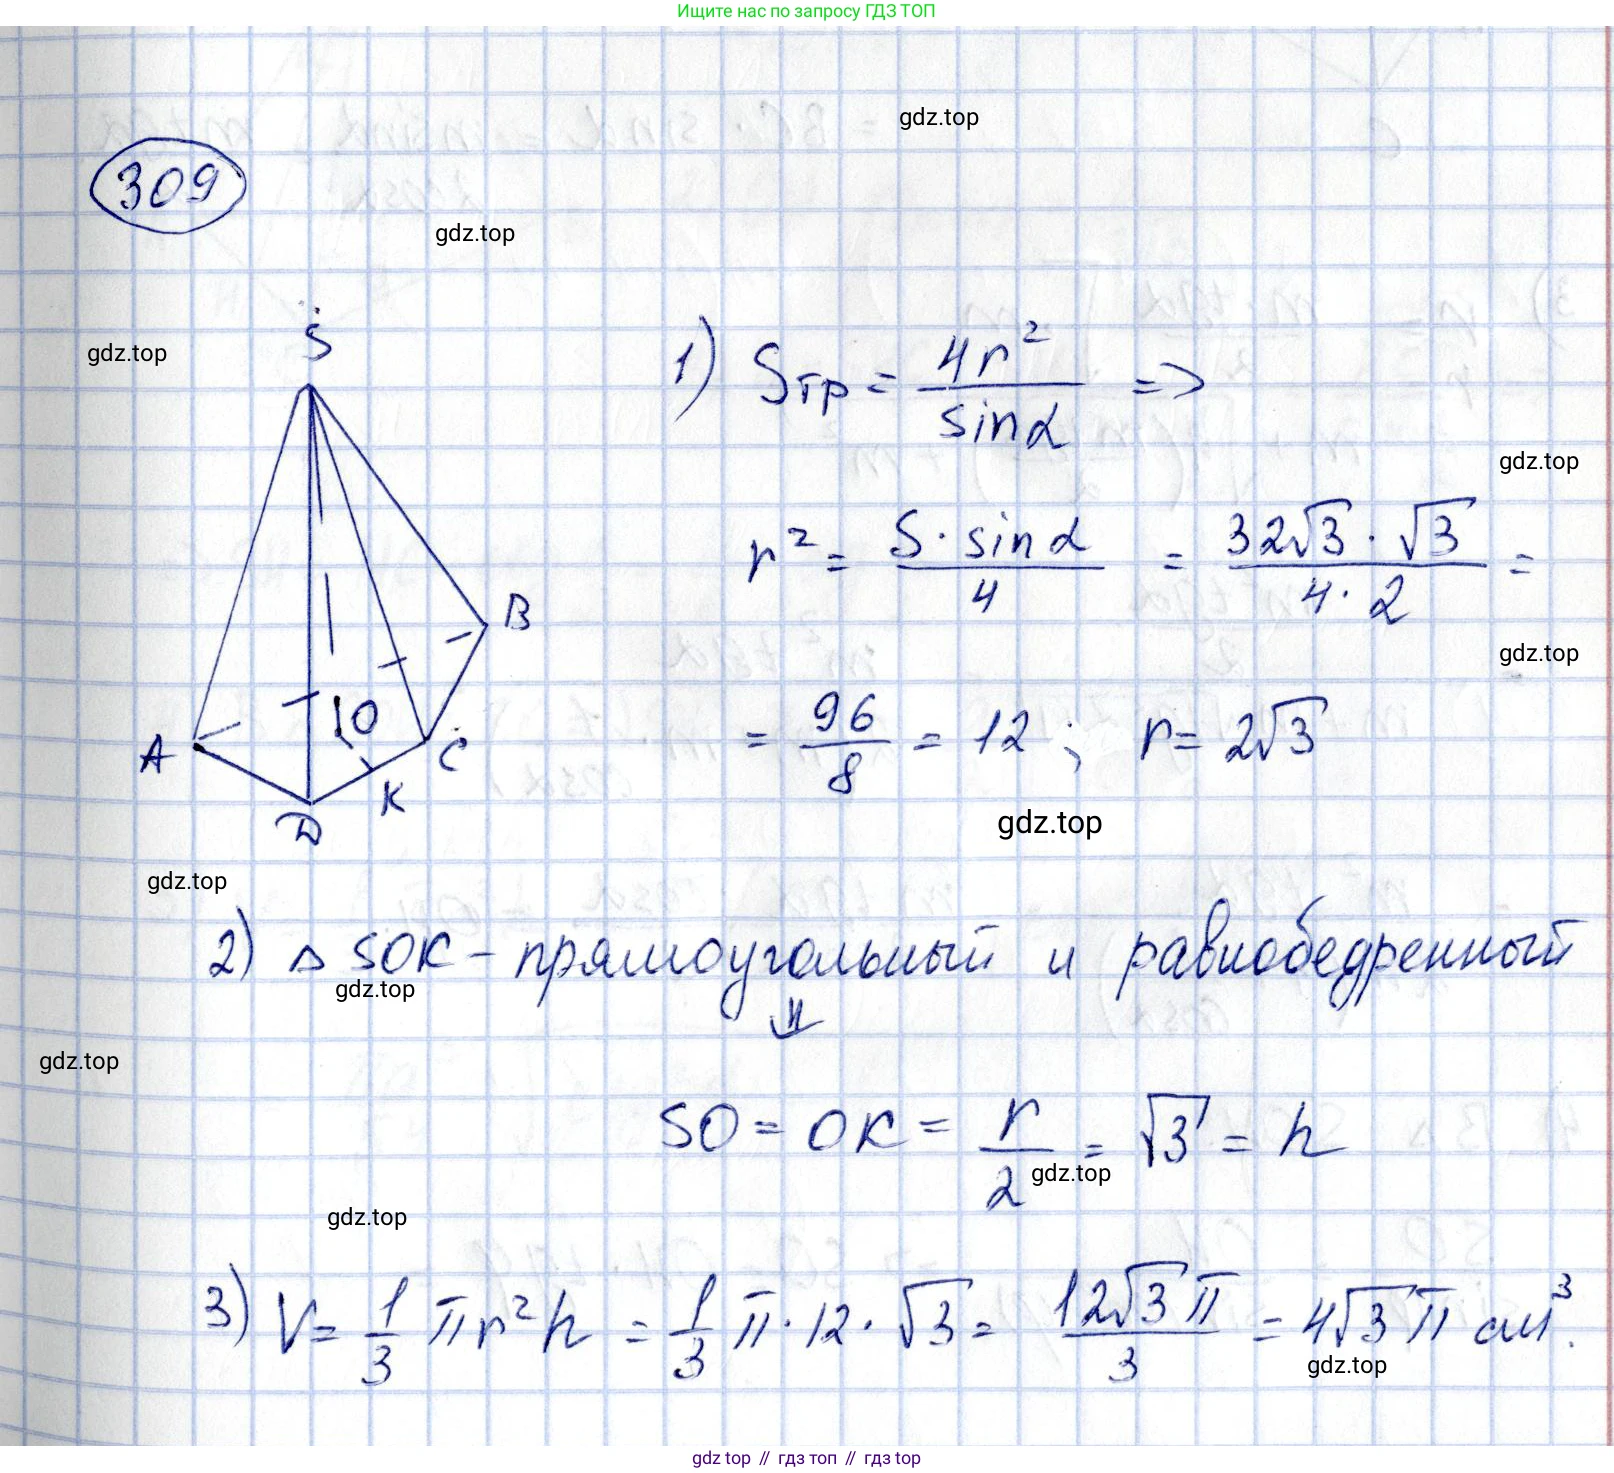 Ищите нас по запросу ГДЗ ТОП
gdz.top
309
gdz.top
S
gdz.top
1) Sтр = 4r² / sinα =>
gdz.top
r² = S · sinα / 4 = 32√3 · √3 / 4 · 2 =
B
gdz.top
= 96 / 8 = 12 ; r = 2√3
A O C
K
D
gdz.top
gdz.top
2) △ SOK – прямоугольный и равнобедренный
gdz.top
⇓
gdz.top
SO = OK = r / 2 = √3 = h
gdz.top
gdz.top
3) V = 1/3 πr²h = 1/3 π · 12 · √3 = 12√3 π / 3 = 4√3 π см³.
gdz.top
gdz top // гдз топ // gdz top